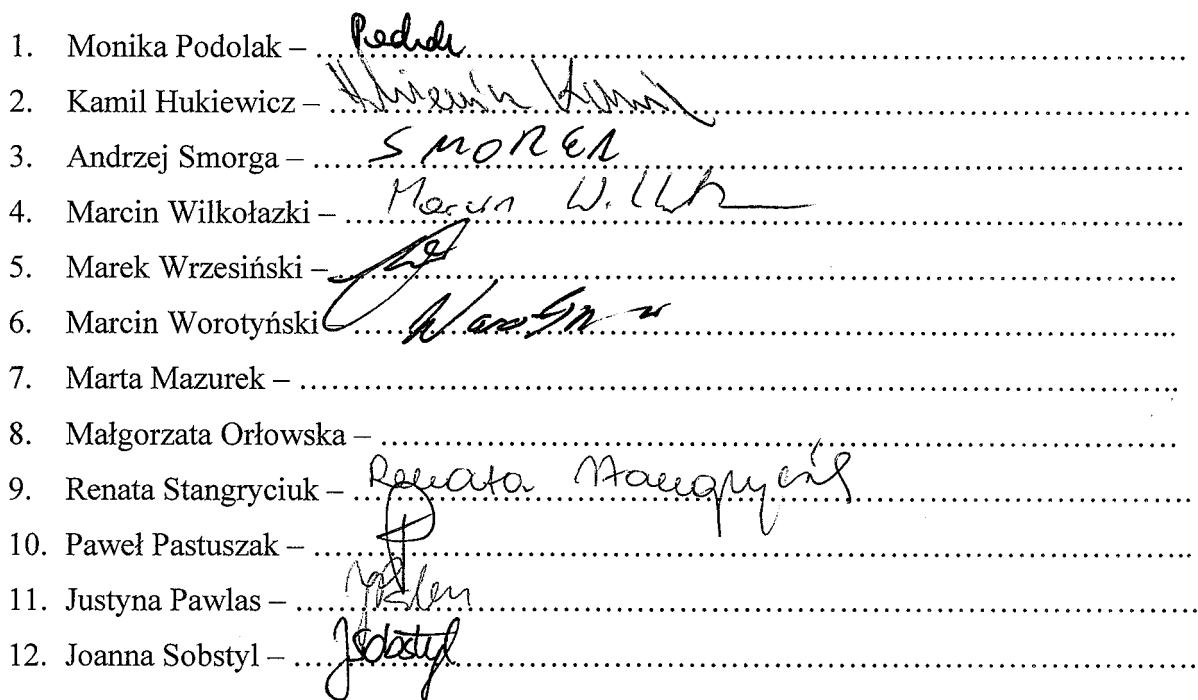 1. Monika Podolak – ....................
2. Kamil Hukiewicz – ....................
3. Andrzej Smorga – ....................
4. Marcin Wilkołazki – .... Marcin
5. Marek Wrzesiński – ....................
6. Marcin Worotyński ....................
7. Marta Mazurek – ....................
8. Małgorzata Orłowska – ....................
9. Renata Stangryciuk – Renata Stangryciuk
10. Paweł Pastuszak – ....................
11. Justyna Pawlas – ....................
12. Joanna Sobstyl – .... JSobstyl